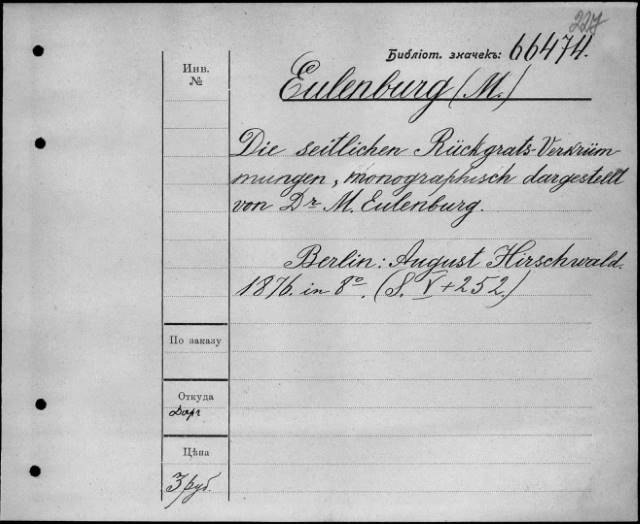 227
Библіот. значекъ: 66474.
Инв.
№
Eulenburg (M.)
Die seitlichen Rückgrats-Verkrüm
mungen, monographisch dargestellt
von Dr M. Eulenburg.
Berlin: August Hirschwald.
1876. in 8°. (S. V+252.)
По заказу
Откуда
Дар
Цѣна
3 руб.